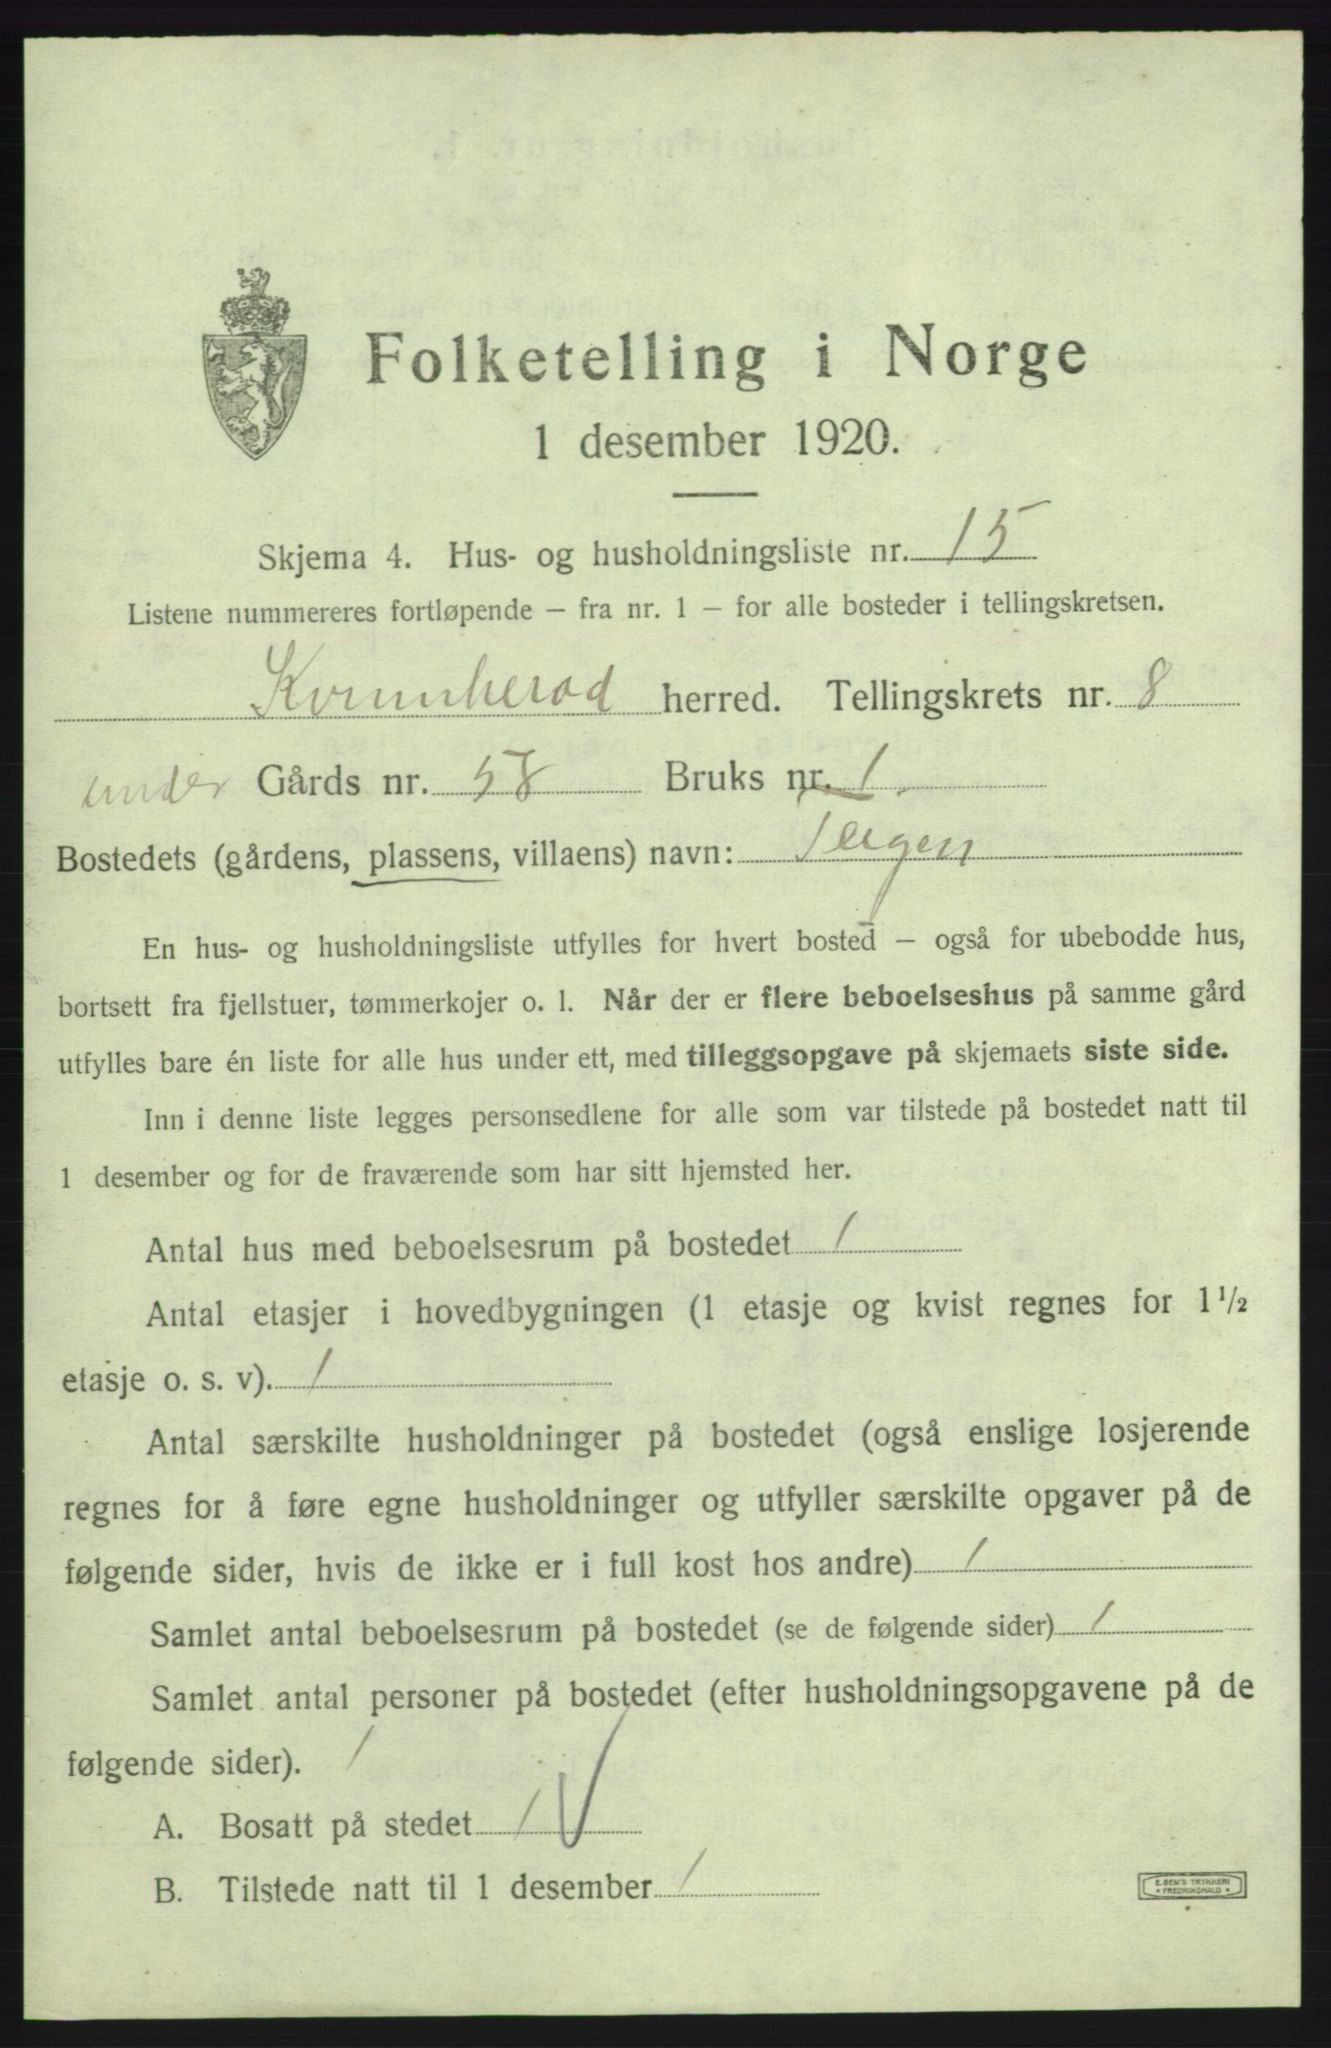 Folketelling i Norge
1 desember 1920.
Skjema 4. Hus- og husholdningsliste nr. 15
Listene nummereres fortløpende – fra nr. 1 – for alle bosteder i tellingskretsen.
Kvinnherad herred. Tellingskrets nr. 8
under Gårds nr. 58 Bruks nr. 1.
Bostedets (gårdens, plassens, villaens) navn: Teigen
En hus- og husholdningsliste utfylles for hvert bosted – også for ubebodde hus,
bortsett fra fjellstuer, tømmerkojer o. l. Når der er flere beboelseshus på samme gård
utfylles bare én liste for alle hus under ett, med tilleggsopgave på skjemaets siste side.
Inn i denne liste legges personsedlene for alle som var tilstede på bostedet natt til
1 desember og for de fraværende som har sitt hjemsted her.
Antal hus med beboelsesrum på bostedet 1
Antal etasjer i hovedbygningen (1 etasje og kvist regnes for 1 1/2
etasje o. s. v). 1
Antal særskilte husholdninger på bostedet (også enslige losjerende
regnes for å føre egne husholdninger og utfyller særskilte opgaver på de
følgende sider, hvis de ikke er i full kost hos andre) 1
Samlet antal beboelsesrum på bostedet (se de følgende sider) 1
Samlet antal personer på bostedet (efter husholdningsopgavene på de
følgende sider). 1
A. Bosatt på stedet 1
B. Tilstede natt til 1 desember 1
E. SEM'S TRYKKERI
• FREDRIKSHALD •